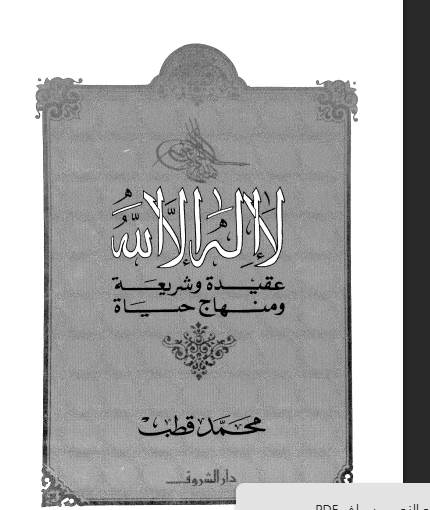 لا إله إلا الله
عقيدة وشريعة
ومنهاج حياة
محمد قطب
دار الشروق
PDF